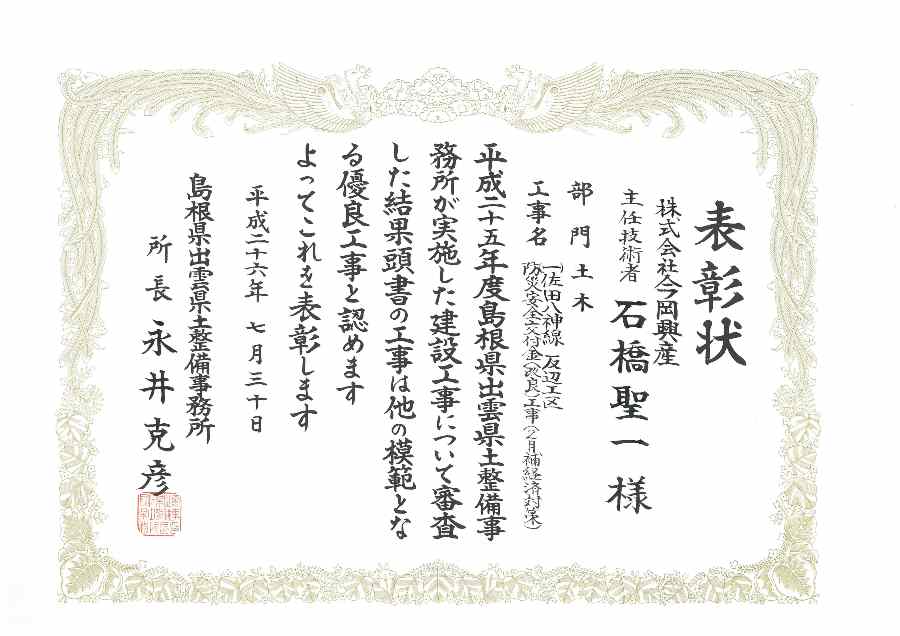 表彰状
株式会社今岡興産
主任技術者 石橋聖一 様
部門 土木
工事名 (一)佐田八神線 反辺工区
防災安全交付金(改良)工事(2月補経済対策)
平成二十五年度島根県出雲県土整備事
務所が実施した建設工事について審査
した結果頭書の工事は他の模範とな
る優良工事と認めます
よってこれを表彰します
平成二十六年 七月三十日
島根県出雲県土整備事務所
所長 永井克彦